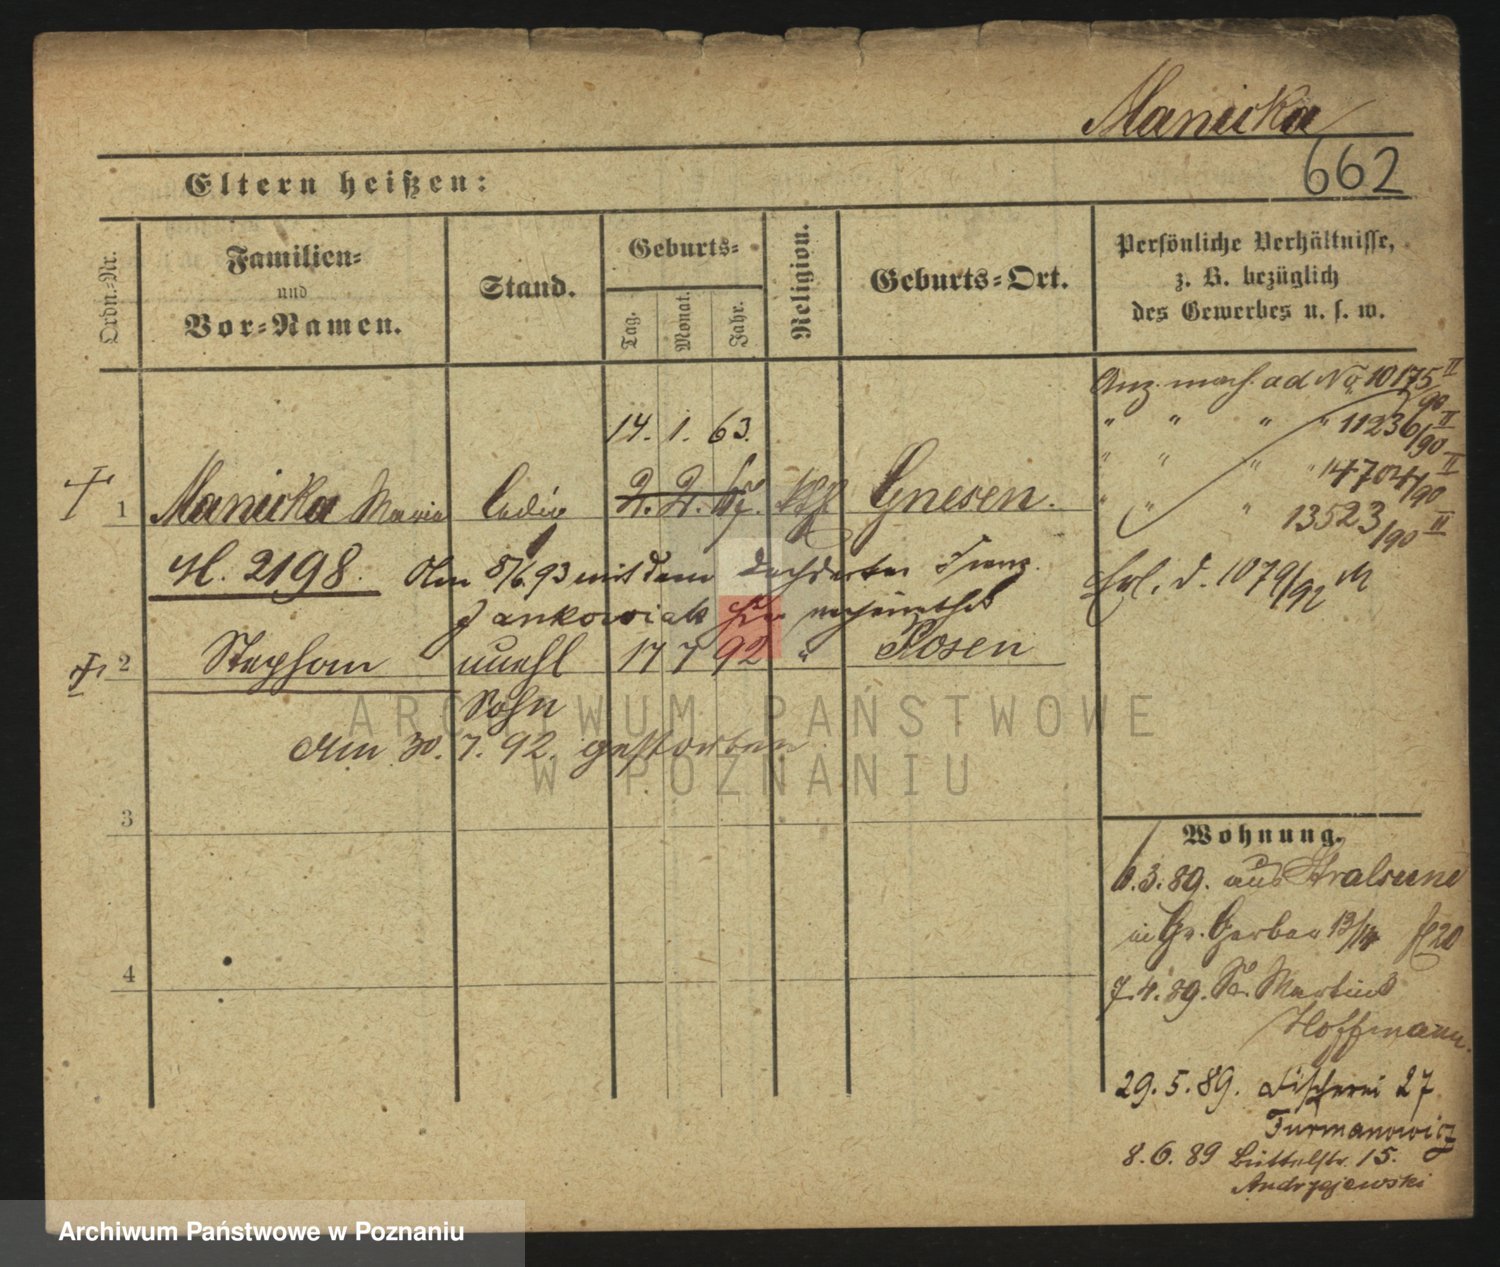 Manicka
662
Eltern heißen:
Ordn.-Nr.
Familien-
und
Vor-Namen.
Stand.
Geburts-
Tag.
Monat.
Jahr.
Religion.
Geburts-Ort.
Persönliche Verhältnisse,
z. B. bezüglich
des Gewerbes u. s. w.
Anz. mach. ad No 10175/90 II
" " " " 11236/90 II
" " " " 14704/90 II
" " " 13523/90 II
14. 1. 63.
1 Manicka Marie ledig 2. 2. 67. kth Gnesen.
H. 2198. Am 8/6.93 mit dem Dachdecker Franz
Jankowiak hier verheirathet
Erl. d. 1079/92 M
2 Stephan unehl 17 7 92 " Posen
Sohn
Am 30. 7. 92. gestorben
3
4
Wohnung.
1.3.89. aus Stralsund
in Gr. Gerber 13/14
7.4.89. St. Martin
Hoffmann.
29.5.89. Fischerei 27
Furmanowicz
8.6.89 Büttelstr. 15.
Andrzejewski
ARCHIWUM PAŃSTWOWE
W POZNANIU
Archiwum Państwowe w Poznaniu